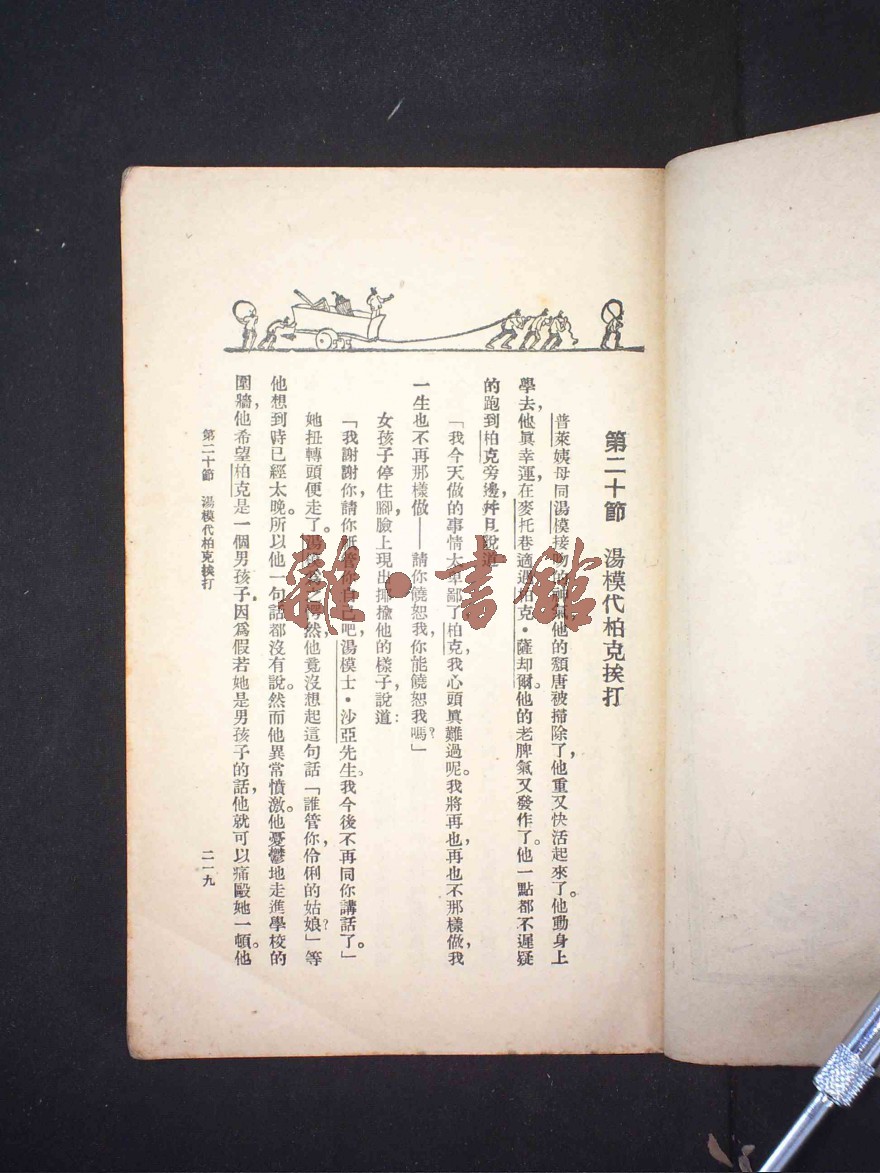 第二十節 湯模代柏克挨打
普萊姨母同湯模接吻的神氣,他的頹唐被掃除了,他重又快活起來了。他動身上
學去,他眞幸運,在麥托巷適遇柏克·薩却爾。他的老脾氣又發作了。他一點都不遲疑
的跑到柏克旁邊,並且說道
「我今天做的事情太卑鄙了,柏克,我心頭眞難過呢。我將再也,再也不那樣做,我
一生也不再那樣做——請你饒恕我,你能饒恕我嗎?」
女孩子停住脚,臉上現出揶揄他的樣子說道:
「我謝謝你,請你祇管你自己吧,湯模士·沙亞先生。我今後不再同你講話了。」
她扭轉頭便走了。湯模爲之愕然,他竟沒想起這句話「誰管你,伶俐的姑娘?」等
他想到時已經太晚。所以他一句話都沒有說。然而他異常憤激。他憂鬱地走進學校的
圍牆,他希望柏克是一個男孩子,因爲假若她是男孩子的話,他就可以痛毆她一頓。他
第二十節 湯模代柏克挨打
二一九
雜·書館